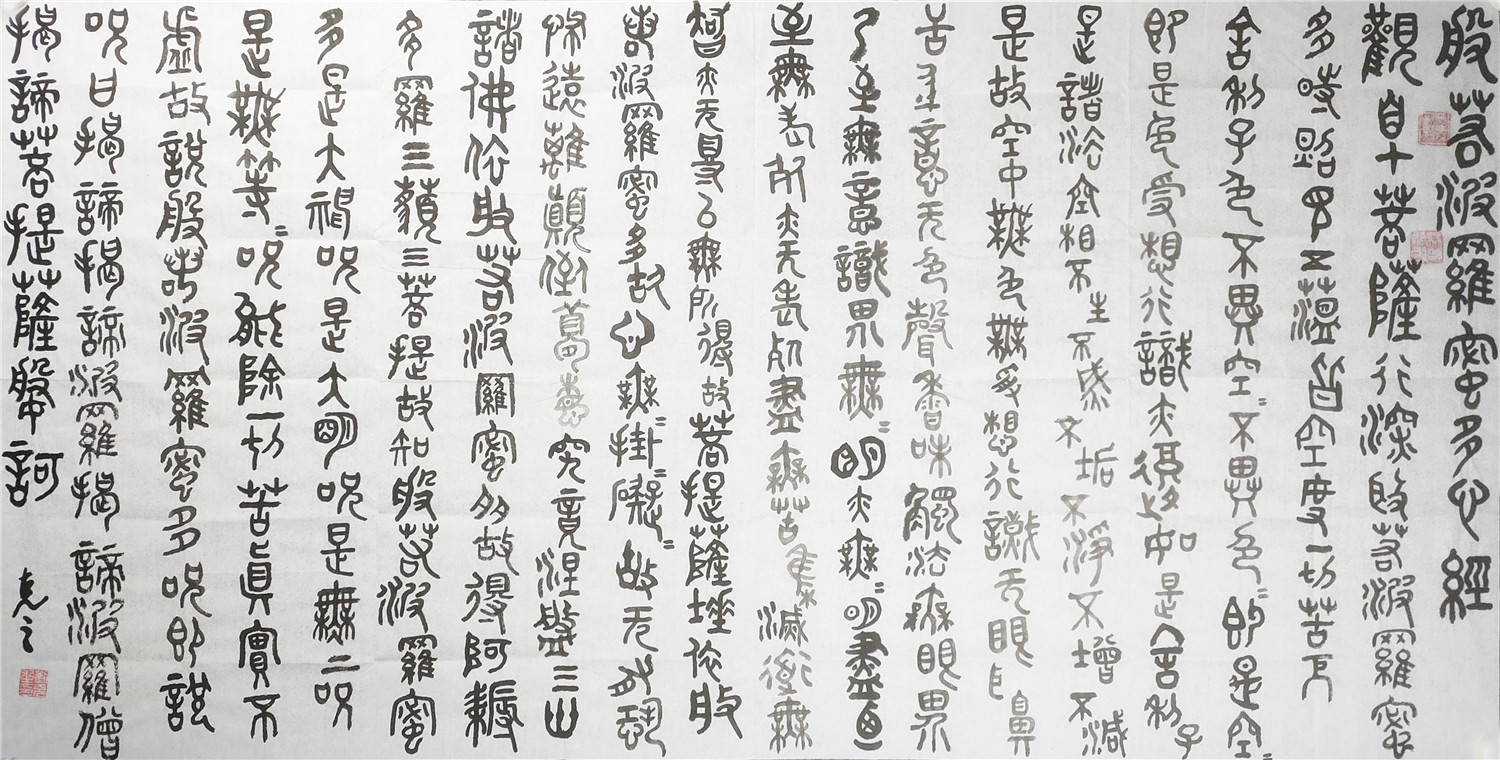 般若波羅蜜多心經
觀自在菩薩行深般若波羅蜜
多時照見五蘊皆空度一切苦厄
舍利子色不異空空不異色色即是空空
即是色受想行識亦復如是舍利子
是諸法空相不生不滅不垢不淨不增不減
是故空中無色無受想行識无眼耳鼻
舌身意无色聲香味觸法無眼界
乃至無意識界無無明亦無無明盡
至無老死亦无老死盡無苦集滅道無
智亦无得以無所得故菩提薩埵依般
若波羅蜜多故心無罣礙罣礙故无有恐
怖遠離顛倒夢想究竟涅槃三世
諸佛依般若波羅蜜多故得阿耨
多羅三藐三菩提故知般若波羅蜜
多是大神咒是大明咒是無上咒
是無等等咒能除一切苦真實不
虛故說般若波羅蜜多咒即說
咒曰揭諦揭諦波羅揭諦波羅僧
揭諦菩提薩婆訶